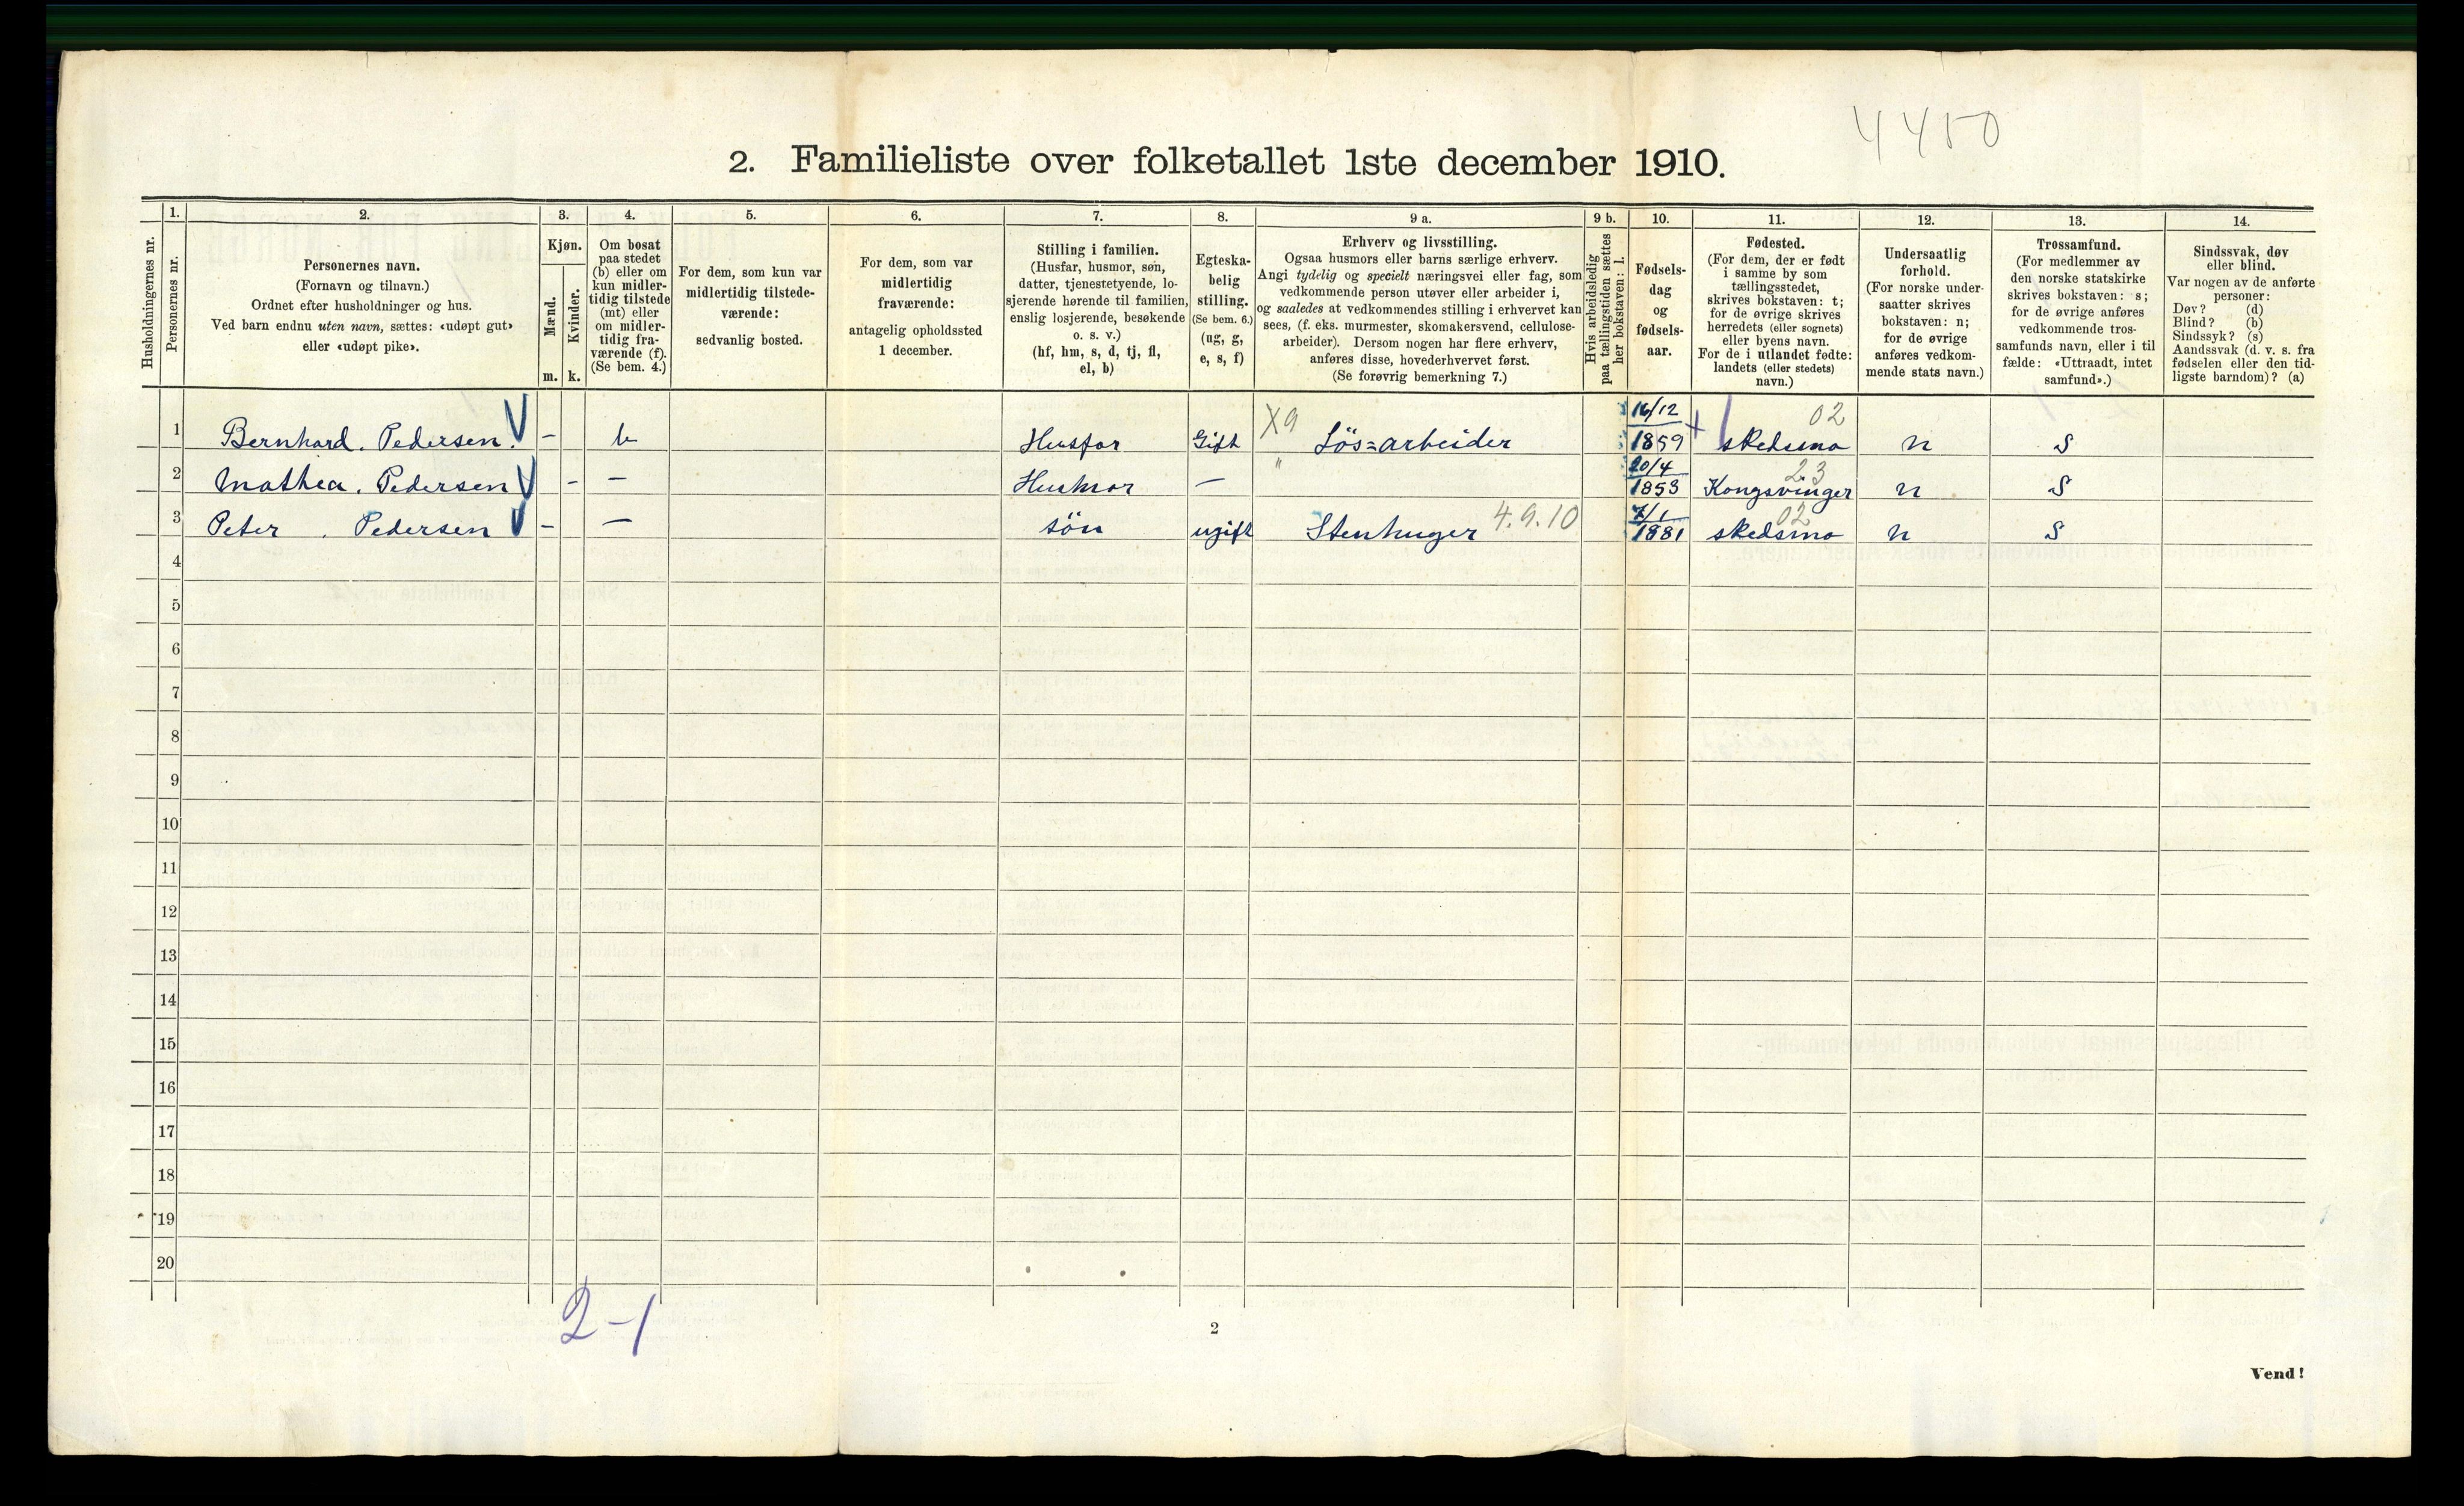 4450
2. Familieliste over folketallet 1ste december 1910.
Husholdningernes nr.
1.
Personernes nr.
2.
Personernes navn.
(Fornavn og tilnavn.)
Ordnet efter husholdninger og hus.
Ved barn endnu uten navn, sættes: «udøpt gut»
eller «udøpt pike».
3.
Kjøn.
Mænd.
m.
Kvinder.
k.
4.
Om bosat
paa stedet
(b) eller om
kun midler-
tidig tilstede
(mt) eller
om midler-
tidig fra-
værende (f).
(Se bem. 4.)
5.
For dem, som kun var
midlertidig tilstede-
værende:
sedvanlig bosted.
6.
For dem, som var
midlertidig
fraværende:
antagelig opholdssted
1 december.
7.
Stilling i familien.
(Husfar, husmor, søn,
datter, tjenestetyende, lo-
sjerende hørende til familien,
enslig losjerende, besøkende
o. s. v.)
(hf, hm, s, d, tj, fl,
el, b)
8.
Egteska-
belig
stilling.
(Se bem. 6.)
(ug, g,
e, s, f)
9 a.
Erhverv og livsstilling.
Ogsaa husmors eller barns særlige erhverv.
Angi tydelig og specielt næringsvei eller fag, som
vedkommende person utøver eller arbeider i,
og saaledes at vedkommendes stilling i erhvervet kan
sees, (f. eks. murmester, skomakersvend, cellulose-
arbeider). Dersom nogen har flere erhverv,
anføres disse, hovederhvervet først.
(Se forøvrig bemerkning 7.)
9 b.
Hvis arbeidsledig
paa tællingstiden sættes
her bokstaven: l.
10.
Fødsels-
dag
og
fødsels-
aar.
11.
Fødested.
(For dem, der er født
i samme by som
tællingsstedet,
skrives bokstaven: t;
for de øvrige skrives
herredets (eller sognets)
eller byens navn.
For de i utlandet fødte:
landets (eller stedets)
navn.)
12.
Undersaatlig
forhold.
(For norske under-
saatter skrives
bokstaven: n;
for de øvrige
anføres vedkom-
mende stats navn.)
13.
Trossamfund.
(For medlemmer av
den norske statskirke
skrives bokstaven: s;
for de øvrige anføres
vedkommende tros-
samfunds navn, eller i til
fælde: «Uttraadt, intet
samfund».)
14.
Sindssvak, døv
eller blind.
Var nogen av de anførte
personer:
Døv? (d)
Blind? (b)
Sindssyk? (s)
Aandssvak (d. v. s. fra
fødselen eller den tid-
ligste barndom)? (a)
1 Bernhard. Pedersen. – b Husfar Gift X9 Løs=arbeider 16/12 1859 02 skedsmo n S
2 Mathea. Pedersen – — Husmor — " 20/4 1853 23 Kongsvinger n S
3 Peter . Pedersen – — søn ugift Stenhuger 4.9.10 7/1 1881 02 skedsmo n S
4
5
6
7
8
9
10
11
12
13
14
15
16
17
18
19
20
2-1
2
Vend!